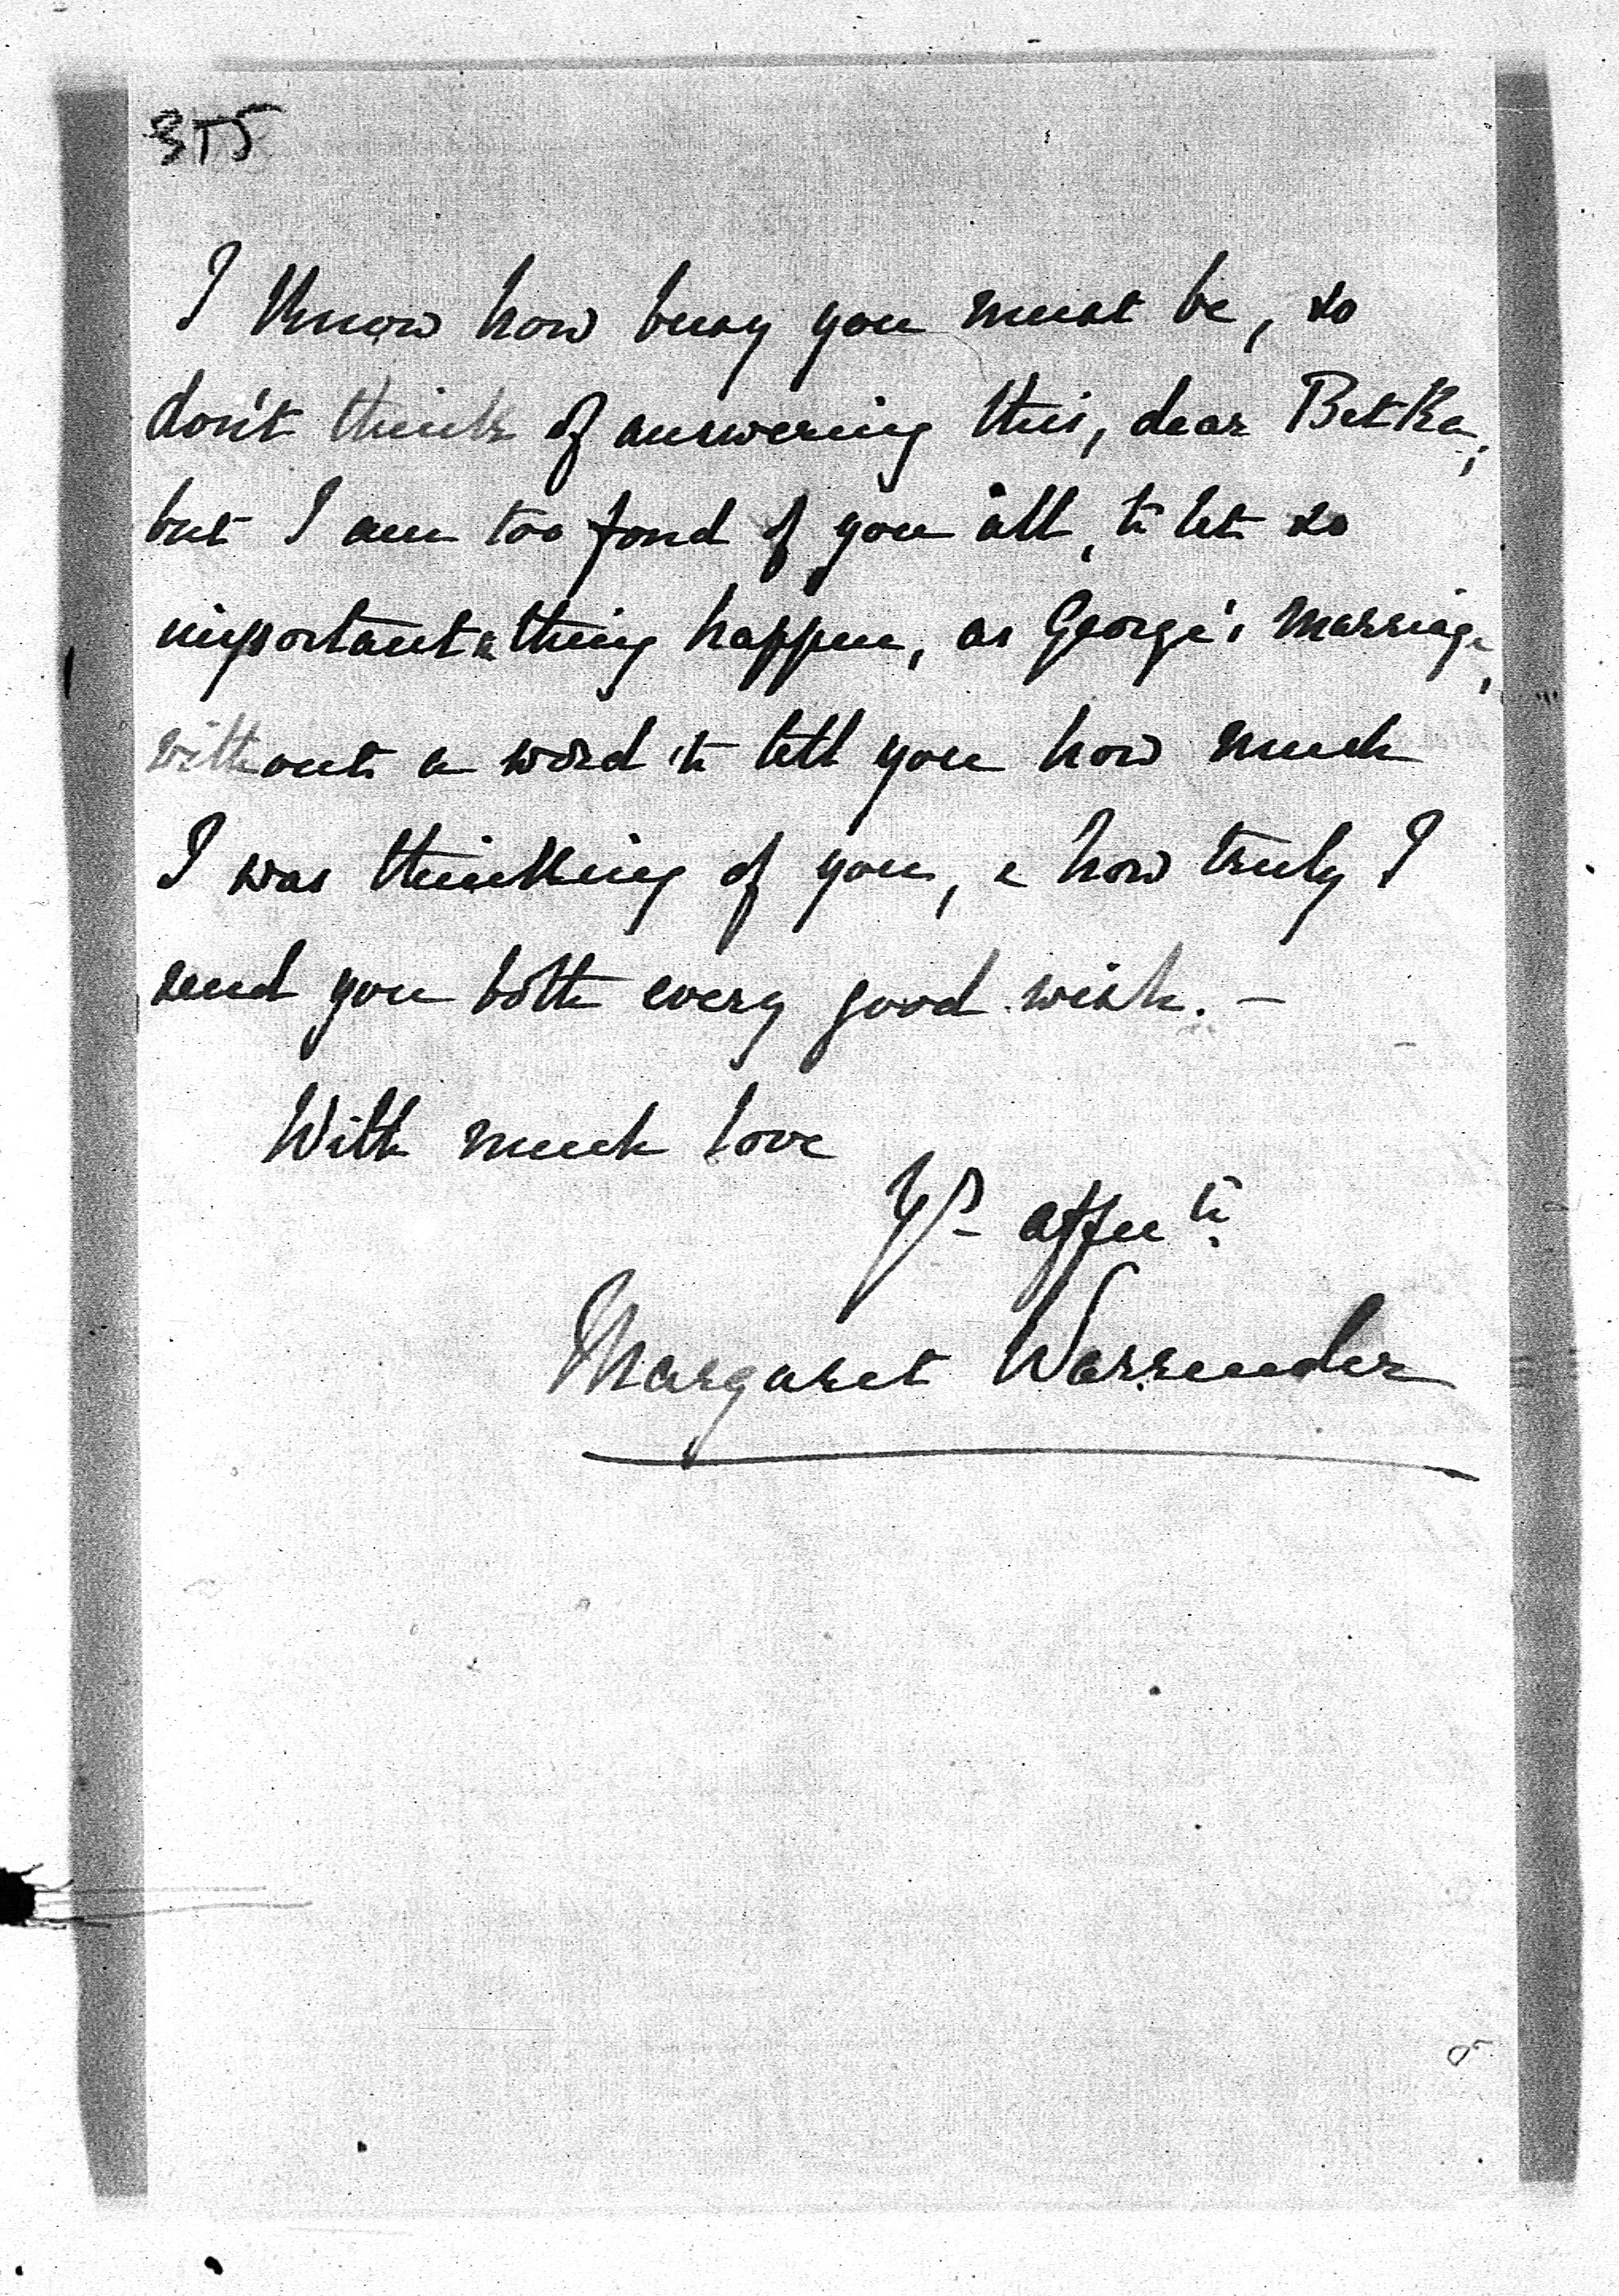 355
I know how busy you must be, so
don't think of answering this, dear Betka,
but I am too fond of you all, to let so
important a thing happen, as George's marriage,
without a word to tell you how much
I was thinking of you, & how truly I
send you both every good wish. –
With much love
Yr affn te
Margaret Warrender